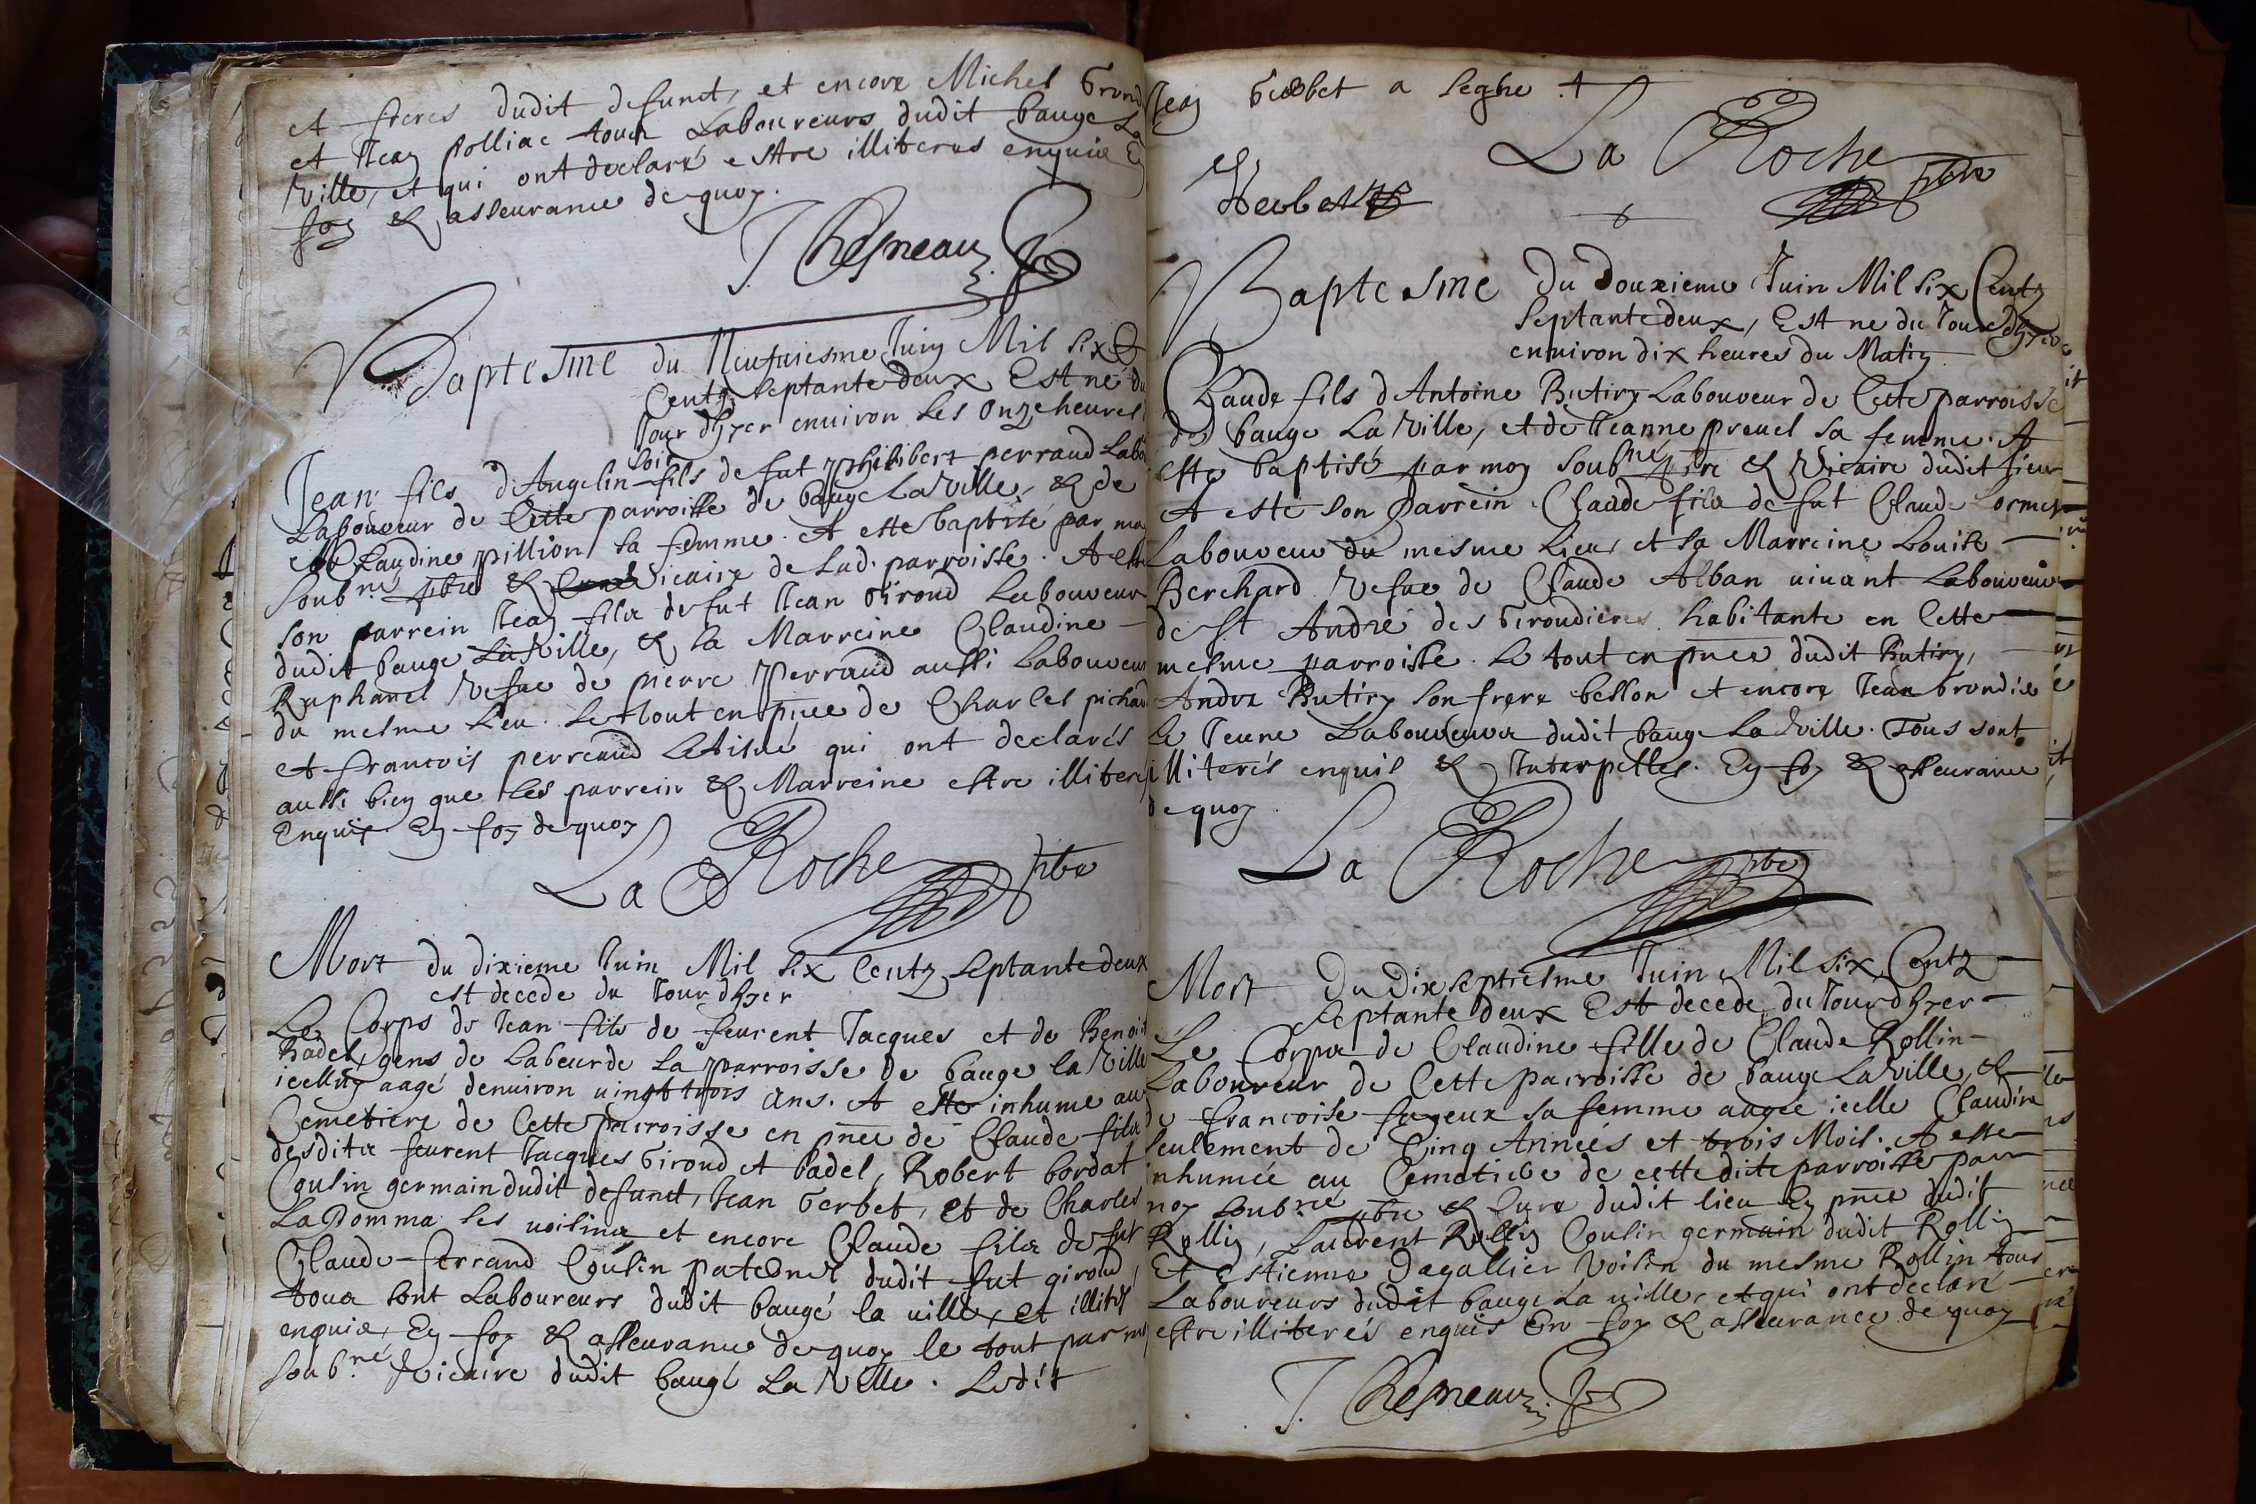 et freres dudit defunct, et encore Michel Brond
et Jean polliac tous Laboureurs dudit bauge La
Ville, et qui ont declaré estre illiteres enquis En
foy & asseurance de quoy.
J Chesneau
Baptesme du Neufuiesme Juin Mil six
Centz septante deux Est né du
Jour d'hyer enuiron les onze heures
soir
Jean fils d'Angelin fils de fut philibert perraud Labo
Laboureur de Cette parroisse de bauge La Ville, & de
Claudine pillion sa femme. A esté baptisé par moy
soub.né pbre & Vicaire de lad. parroisse. A esté
son parrein Jean filz de fut Jean Giroud Laboureur
dudit bauge La Ville, & la Marreine Claudine
Raphanel Vefue de pierre Perraud aussi Laboureur
du mesme lieu. Le tout en pnce de Charles pichard
et francois perreaud L'Aisné qui ont declarés
aussi bien que les parrein & Marreine estre illiteres
Enquis. En foy de quoy
La Roche pbre
Mort du dixieme Juin Mil six Centz septante deux
est decede du Jour d'hyer
Le Corps de Jean filz de feurent Jacques et de Benoit
Badel, gens de Labeur de La parroisse de bauge la Ville
icelluy aagé denuiron uingt trois ans. A esté inhume au
Cemetiere de Cette parroisse en pnce de Claude filz
desditz feurent Jacques Giroud et badel, Robert bordat
Cousin germain dudit defunct, Jean Gerbet, et de Charles
La Pomma ses uoisins et encore Claude filz de fut
Claude ferrand Cousin paternel dudit fut giroud,
tous sont Laboureurs dudit baugé la uille, et illitrés
enquis, En foy & asseurance de quoy le tout par moy
soub.né Vicaire dudit baugé La Ville. Ledit
Jean Gerbet a signe. +
La Roche pbre
Gerbet
Baptesme Du Douzieme Juin Mil six Centz
septante deux, Est né du Jour d'hyer
enuiron dix heures du Matin
Claude fils d'Antoine Butiry Laboureur de Cette parroisse
de bauge La Ville, et de Jeanne preuel sa femme. A
esté baptisé par moy soub.né pbre & Vicaire dudit lieu
A esté son parrein Claude filz de fut Claude Cormet
Laboureur du mesme lieu, et sa Marreine Louise
Berchard Vefue de Claude Alban uiuant Laboureur
de St André des Giroudieres habitante en Cette
mesme parroisse. Le tout en pnce dudit Butiry,
Andre Butiry son frere besson et encore Jean brondis
Le Jeune Laboureurs dudit bauge La Ville. Tous sont
illiterés enquis & Interpelles. En foy & asseurance
de quoy
La Roche pbre
Mort Du Dix septiesme Juin Mil six Centz
septante deux Est decede du Jour d'hyer
Le Corps de Claudine fille de Claude Rollin
Laboureur de Cette parroisse de bauge La Ville, &
de francoise fuyeux sa femme aagee icelle Claudine
seulement de Cinq Années et trois Mois. A esté
inhumée au Cemetiere de cette dite parroisse par
moy soub.né pbre & Cure dudit lieu En pnce dudit
Rollin, Laurent Rollin Cousin germain dudit Rollin
Et Estienne Dagallier Voisin du mesme Rollin tous
Laboureurs dudit bauge La uille, et qui ont declaré
estre illiterés enquis En foy & asseurance de quoy
J. Chesneau